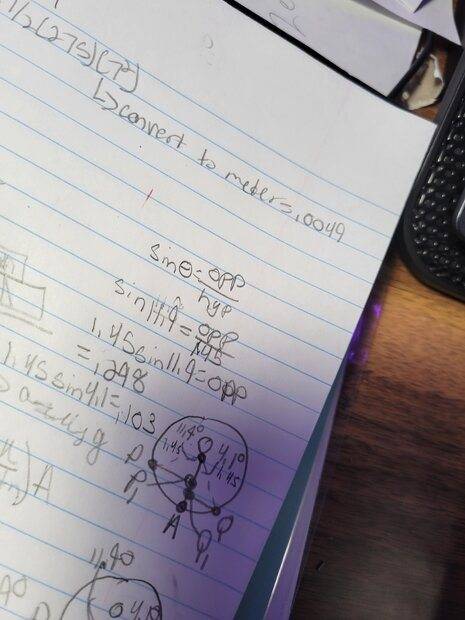 1/2(275)(7²)
↳convert to meters=.0049
sinθ=opp/hyp
sin11.9=opp/1.45
1.45sin11.9=opp
=.298
1.45sin4.1=.103
a=-μsg
A
11.4° 4.1°
1.45 1.45
P
P₁
A
Q
Q₁
11.40